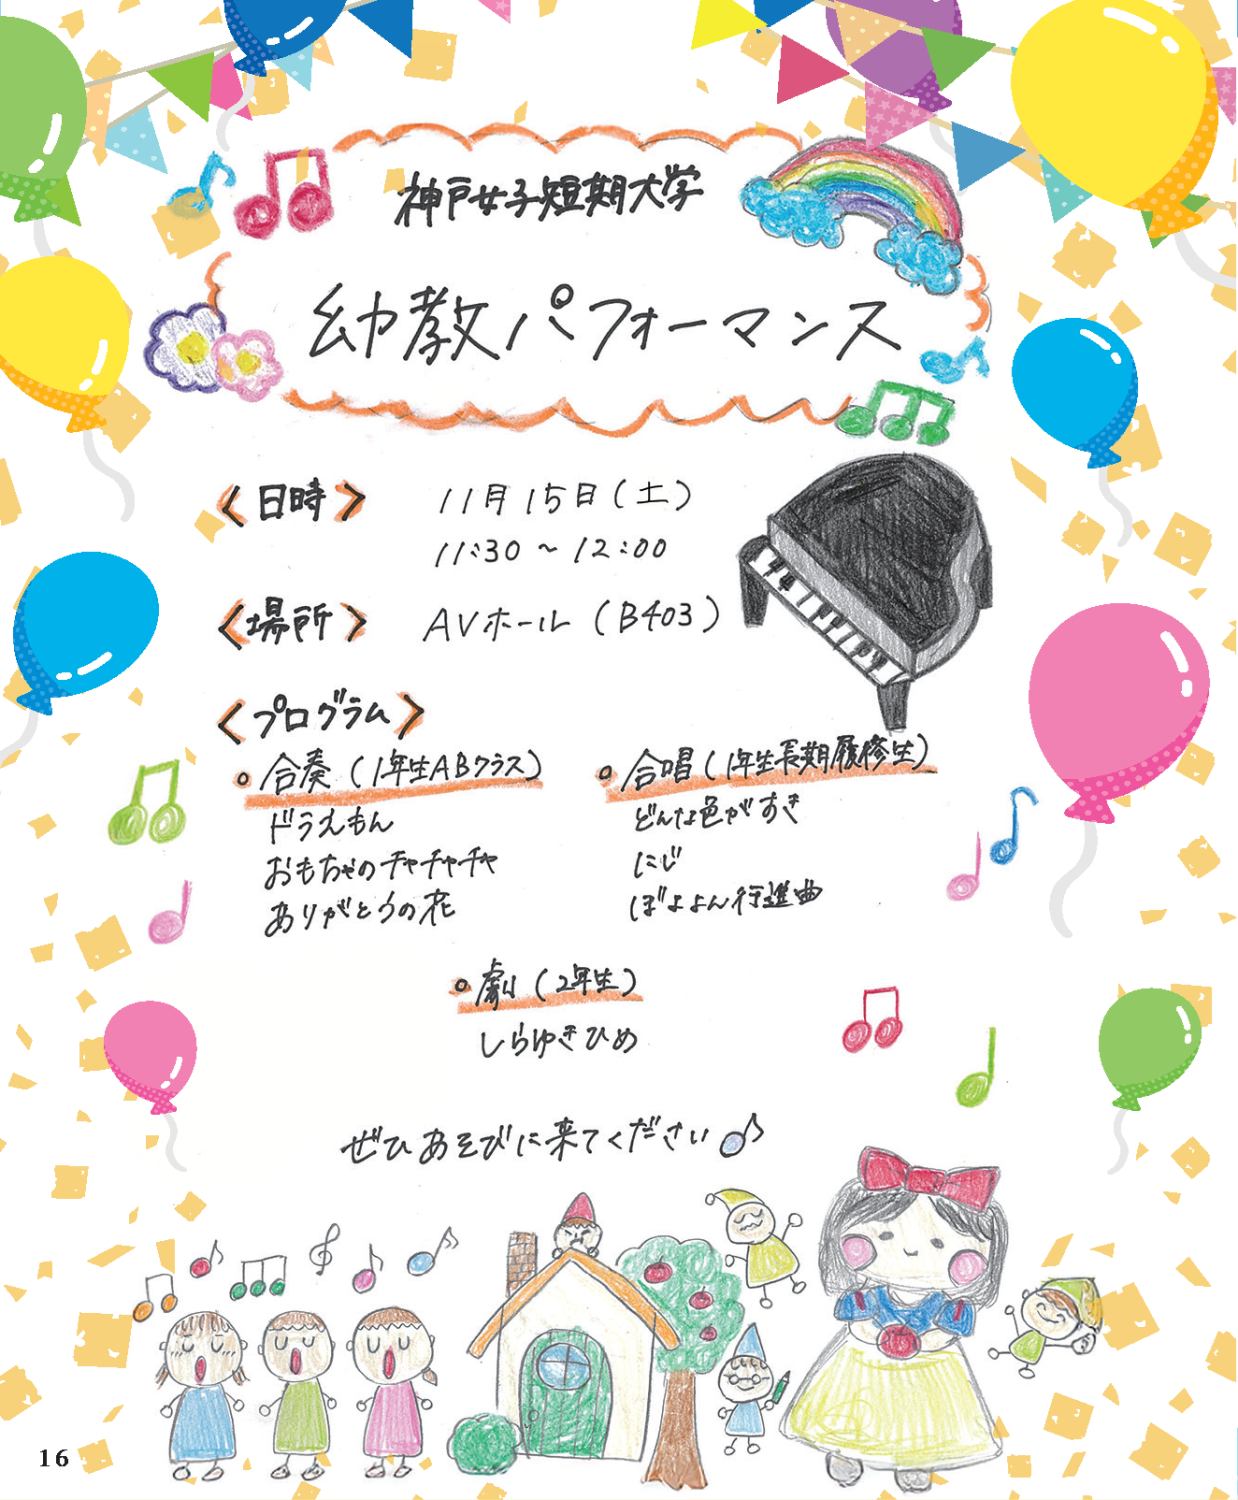 神戸女子短期大学
幼教パフォーマンス
<日時> 11月15日(土)
11:30~12:00
<場所> AVホール(B403)
<プログラム>
○合奏(1年生ABクラス)
ドラえもん
おもちゃのチャチャチャ
ありがとうの花
○合唱(1年生長期履修生)
どんな色がすき
にじ
ぼよよん行進曲
○劇(2年生)
しらゆきひめ
ぜひあそびに来てください
16